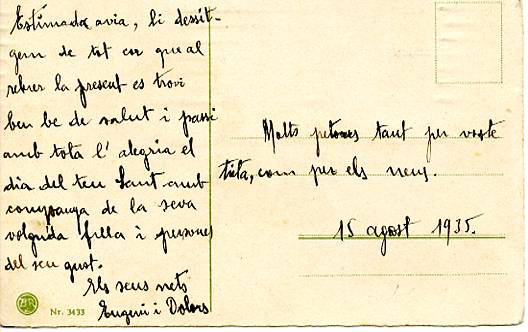 Estimada avia, li dessit-
gem de tot cor que al
rebrer la present es trovi
ben be de salut i passi
amb tota l'alegria el
dia del teu Sant amb
companya de la seva
volguda filla i persones
del seu gust.
Els seus nets
Eugeni i Dolors
Nr. 3433
Molts petons tant per voste
tieta, com per els nens.
15 agost 1935.